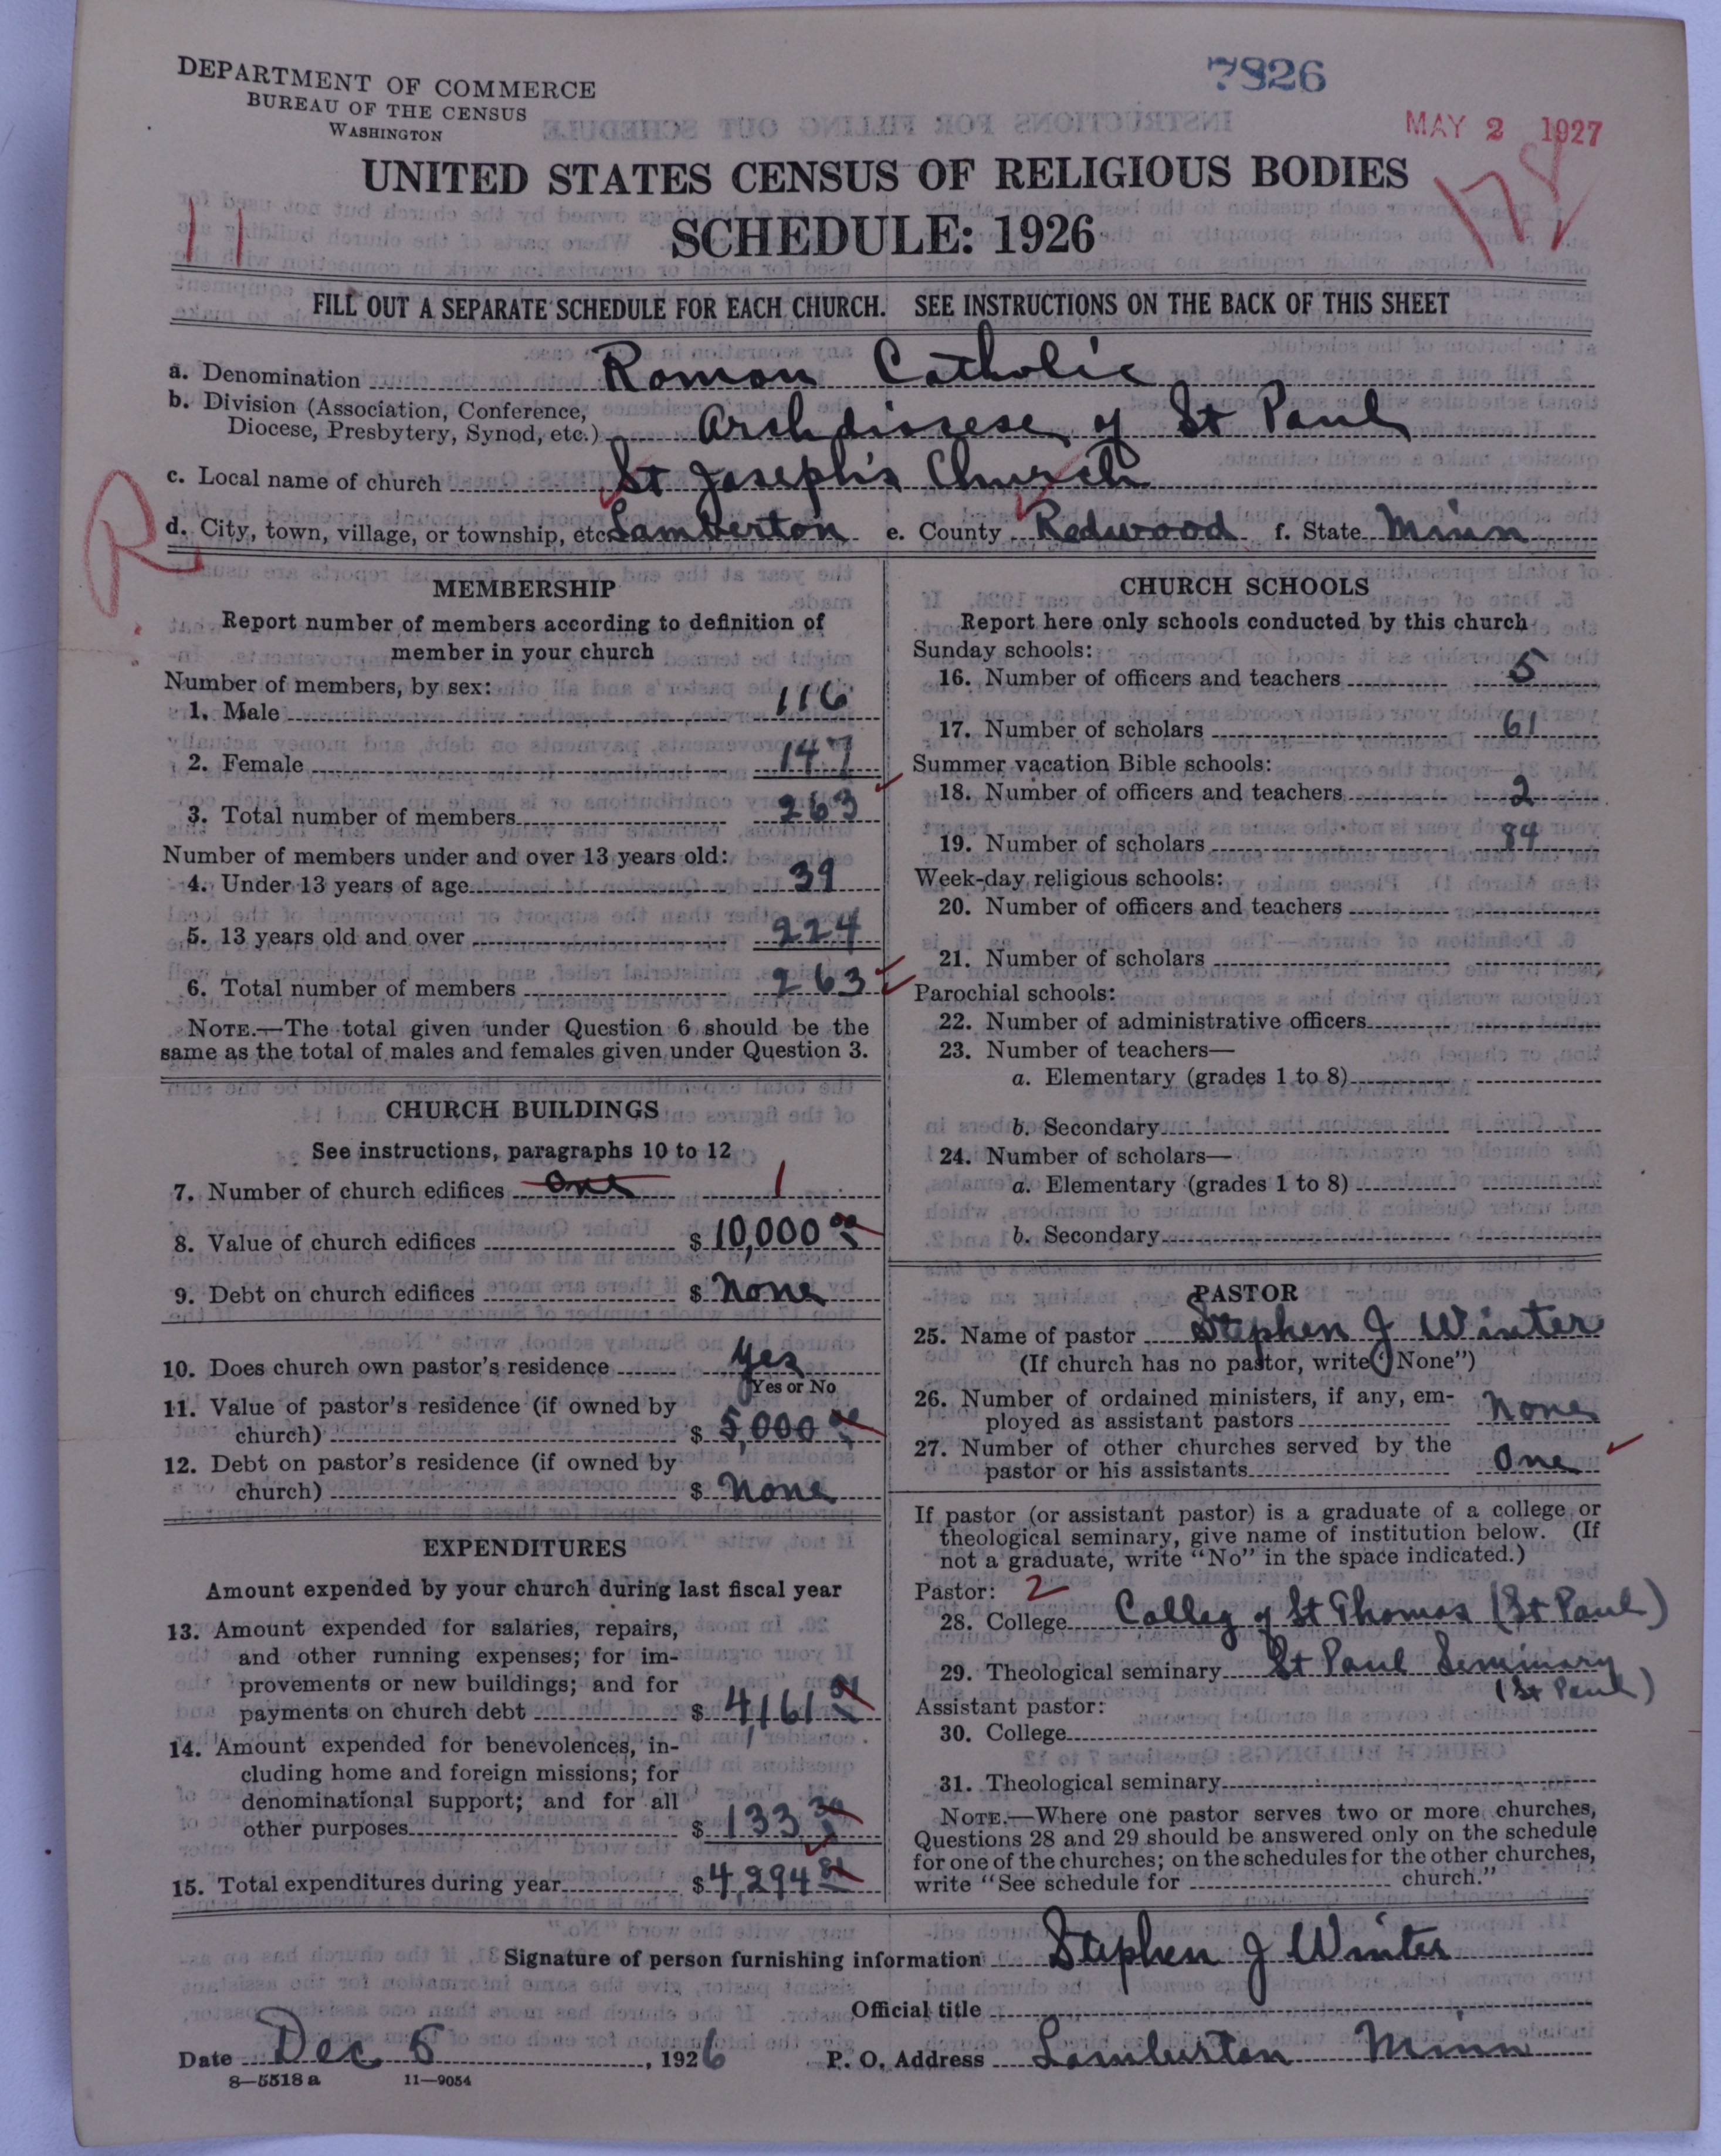 DEPARTMENT OF COMMERCE
BUREAU OF THE CENSUS
WASHINGTON
7826
MAY 2 1927
UNITED STATES CENSUS OF RELIGIOUS BODIES
SCHEDULE: 1926
11
FILL OUT A SEPARATE SCHEDULE FOR EACH CHURCH. SEE INSTRUCTIONS ON THE BACK OF THIS SHEET
a. Denomination Roman Catholic
b. Division (Association, Conference,
Diocese, Presbytery, Synod, etc.) Archdiocese of St Paul
c. Local name of church St Joseph's Church
R
d. City, town, village, or township, etc. Lamberton e. County Redwood f. State Minn
MEMBERSHIP
Report number of members according to definition of
member in your church
Number of members, by sex:
1. Male 116
2. Female 147
3. Total number of members 263
Number of members under and over 13 years old:
4. Under 13 years of age 39
5. 13 years old and over 224
6. Total number of members 263
NOTE.—The total given under Question 6 should be the
same as the total of males and females given under Question 3.
CHURCH BUILDINGS
See instructions, paragraphs 10 to 12
7. Number of church edifices One 1
8. Value of church edifices $ 10,000 00
9. Debt on church edifices $ None
10. Does church own pastor's residence Yes
Yes or No
11. Value of pastor's residence (if owned by
church) $ 5,000 00
12. Debt on pastor's residence (if owned by
church) $ None
EXPENDITURES
Amount expended by your church during last fiscal year
13. Amount expended for salaries, repairs,
and other running expenses; for im-
provements or new buildings; and for
payments on church debt $ 4,161
14. Amount expended for benevolences, in-
cluding home and foreign missions; for
denominational support; and for all
other purposes $ 133
15. Total expenditures during year $ 4,294
CHURCH SCHOOLS
Report here only schools conducted by this church
Sunday schools:
16. Number of officers and teachers 5
17. Number of scholars 61
Summer vacation Bible schools:
18. Number of officers and teachers 2
19. Number of scholars 84
Week-day religious schools:
20. Number of officers and teachers
21. Number of scholars
Parochial schools:
22. Number of administrative officers
23. Number of teachers—
a. Elementary (grades 1 to 8)
b. Secondary
24. Number of scholars—
a. Elementary (grades 1 to 8)
b. Secondary
PASTOR
25. Name of pastor Stephen J Winter
(If church has no pastor, write "None")
26. Number of ordained ministers, if any, em-
ployed as assistant pastors None
27. Number of other churches served by the
pastor or his assistants One
If pastor (or assistant pastor) is a graduate of a college or
theological seminary, give name of institution below. (If
not a graduate, write "No" in the space indicated.)
Pastor: 2
28. College Colleg of St Thomas (St Paul)
29. Theological seminary St Paul Seminary
(St Paul)
Assistant pastor:
30. College
31. Theological seminary
NOTE.—Where one pastor serves two or more churches,
Questions 28 and 29 should be answered only on the schedule
for one of the churches; on the schedules for the other churches,
write "See schedule for church."
Signature of person furnishing information Stephen J Winter
Official title
Date Dec 5, 1926 P. O. Address Lamberton Minn
8—5518 a 11—9054